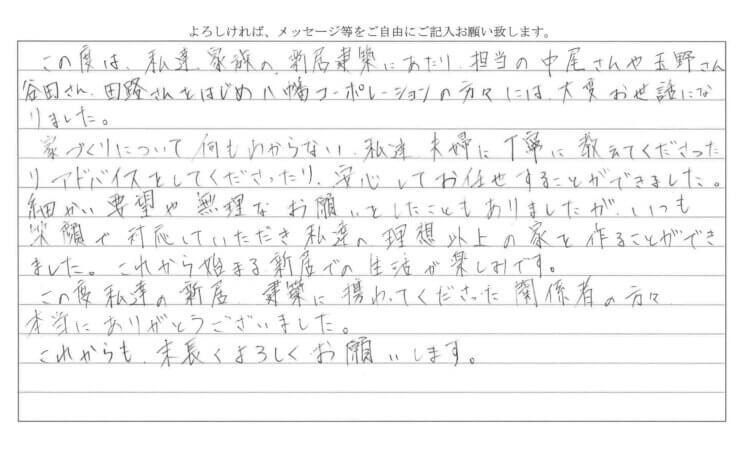 よろしければ、メッセージ等をご自由にご記入お願い致します。
この度は、私達、家族の、新居建築にあたり、担当の中尾さんや玉野さん
谷田さん、田路さんをはじめ八幡コーポレーションの方々には、大変お世話にな
りました。
家づくりについて何もわからない、私達夫婦に丁寧に教えてくださった
りアドバイスをしてくださったり、安心してお任せすることができました。
細かい要望や無理なお願いをしたこともありましたが、いつも
笑顔で対応していただき私達の理想以上の家を作ることができ
ました。これから始まる新居での生活が楽しみです。
この度私達の新居、建築に携わってくださった関係者の方々
本当にありがとうございました。
これからも、末長くよろしくお願いします。